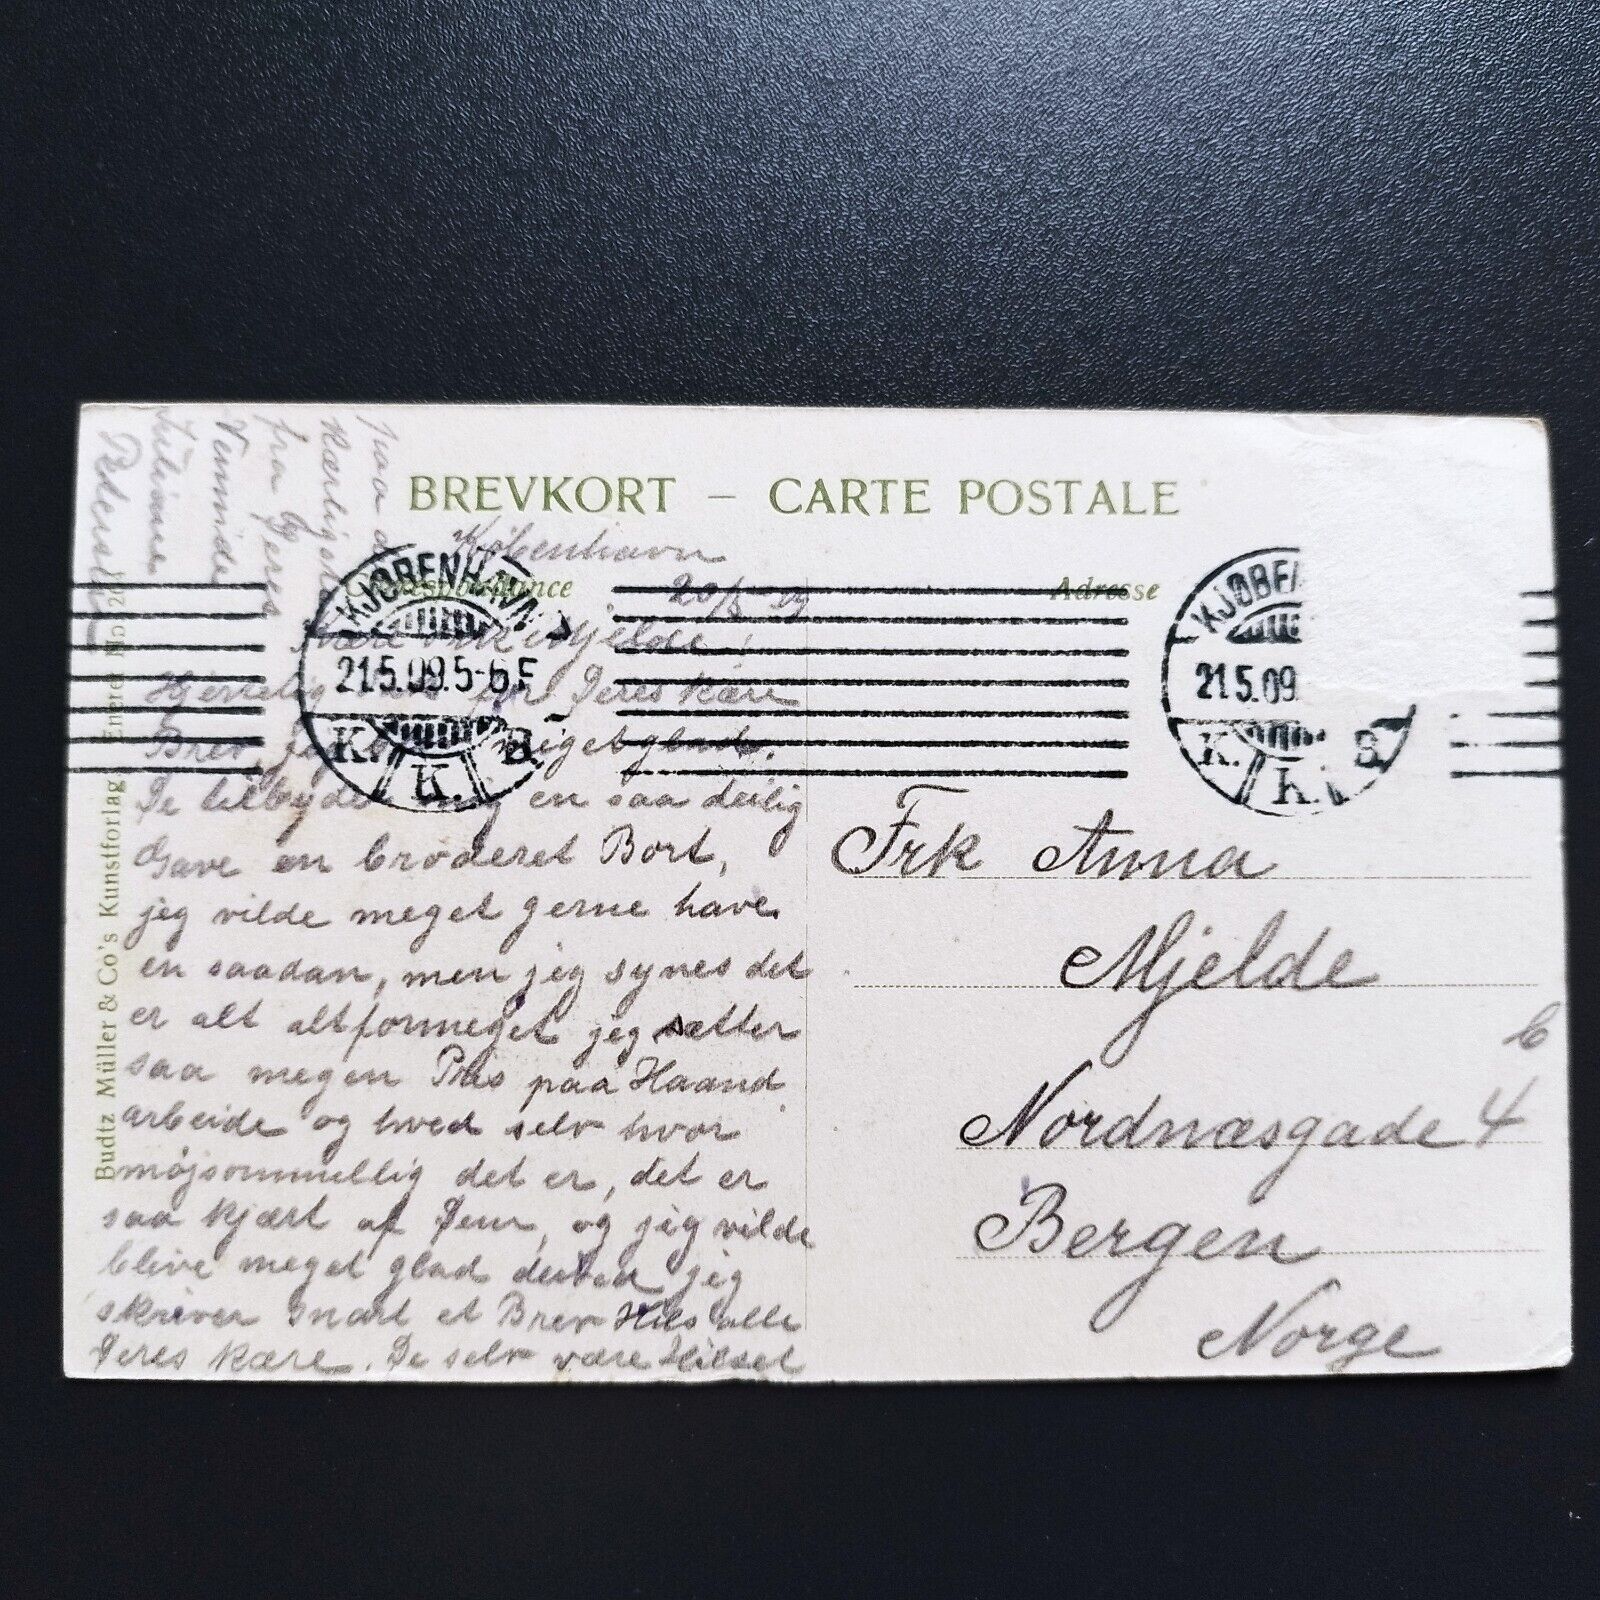 BREVKORT – CARTE POSTALE
Correspondance
Adresse
København
20/5 - 09
Kære Frk Mjelde!
Hjertelig for Deres kære
Brev, jeg meget glad,
De tilbyder mig en saa deilig
Gave en broderet Bort,
jeg vilde meget gerne have
en saadan, men jeg synes det
er alt altformeget jeg sætter
saa megen Pris paa Haand
arbeide og hved selv hvor
møjsommellig det er, det er
saa kjært af Dem, og jeg vilde
blive meget glad derved jeg
skriver snart et Brev Hils alle
Deres kære. De selv være Hilset
paa d
kærligste
fra Deres
Veninde
Juliane
Pedersen
KJØBENHAVN
21.5.09.5-6 F
K. K. B.
KJØBEN
21.5.09
K. K. B.
Frk Anna
Mjelde
Nordnæsgade 4
b
Bergen
Norge
Budtz Müller & Co's Kunstforlag Eneret No